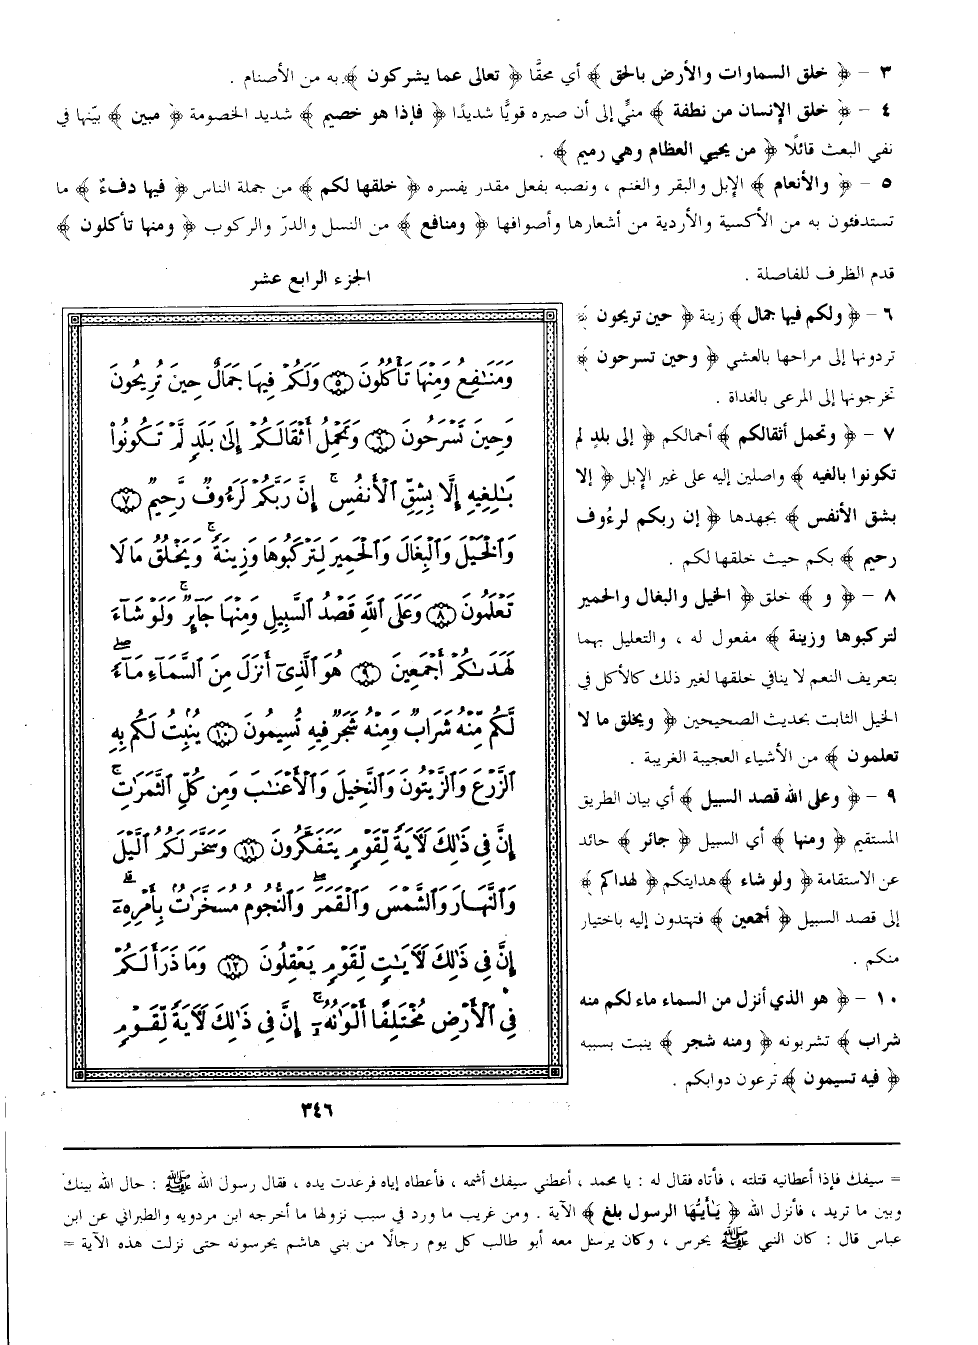 ٣ - ﴿ خلق السماوات والأرض بالحق ﴾ أي محقًّا ﴿ تعالى عما يشركون ﴾ به من الأصنام .
٤ - ﴿ خلق الإنسان من نطفة ﴾ منيٍّ إلى أن صيره قويًّا شديدًا ﴿ فإذا هو خصيم ﴾ شديد الخصومة ﴿ مبين ﴾ بيّنها في
نفي البعث قائلًا ﴿ من يحيي العظام وهي رميم ﴾ .
٥ - ﴿ والأنعام ﴾ الإبل والبقر والغنم ، ونصبه بفعل مقدر يفسره ﴿ خلقها لكم ﴾ من جملة الناس ﴿ فيها دفءٌ ﴾ ما
تستدفئون به من الأكسية والأردية من أشعارها وأصوافها ﴿ ومنافع ﴾ من النسل والدرّ والركوب ﴿ ومنها تأكلون ﴾
قدم الظرف للفاصلة .
٦ - ﴿ ولكم فيها جمال ﴾ زينة ﴿ حين تريحون ﴾
تردونها إلى مراحها بالعشي ﴿ وحين تسرحون ﴾
تخرجونها إلى المرعى بالغداة .
٧ - ﴿ وتحمل أثقالكم ﴾ أحمالكم ﴿ إلى بلدٍ لم
تكونوا بالغيه ﴾ واصلين إليه على غير الإبل ﴿ إلا
بشق الأنفس ﴾ بجهدها ﴿ إن ربكم لرءُوف
رحيم ﴾ بكم حيث خلقها لكم .
٨ - ﴿ و ﴾ خلق ﴿ الخيل والبغال والحمير
لتركبوها وزينة ﴾ مفعول له ، والتعليل بهما
بتعريف النعم لا ينافي خلقها لغير ذلك كالأكل في
الخيل الثابت بحديث الصحيحين ﴿ ويخلق ما لا
تعلمون ﴾ من الأشياء العجيبة الغريبة .
٩ - ﴿ وعلى الله قصد السبيل ﴾ أي بيان الطريق
المستقيم ﴿ ومنها ﴾ أي السبيل ﴿ جائر ﴾ حائد
عن الاستقامة ﴿ ولو شاء ﴾ هدايتكم ﴿ لهداكم ﴾
إلى قصد السبيل ﴿ أجمعين ﴾ فتهتدون إليه باختيار
منكم .
١٠ - ﴿ هو الذي أنزل من السماء ماء لكم منه
شراب ﴾ تشربونه ﴿ ومنه شجر ﴾ ينبت بسببه
﴿ فيه تسيمون ﴾ ترعون دوابكم .
الجزء الرابع عشر
وَمَنَٰفِعُ وَمِنْهَا تَأْكُلُونَ ٥ وَلَكُمْ فِيهَا جَمَالٌ حِينَ تُرِيحُونَ
وَحِينَ تَسْرَحُونَ ٦ وَتَحْمِلُ أَثْقَالَكُمْ إِلَىٰ بَلَدٍ لَّمْ تَكُونُوا۟
بَٰلِغِيهِ إِلَّا بِشِقِّ ٱلْأَنفُسِ ۚ إِنَّ رَبَّكُمْ لَرَءُوفٌ رَّحِيمٌ ٧
وَٱلْخَيْلَ وَٱلْبِغَالَ وَٱلْحَمِيرَ لِتَرْكَبُوهَا وَزِينَةً ۚ وَيَخْلُقُ مَا لَا
تَعْلَمُونَ ٨ وَعَلَى ٱللَّهِ قَصْدُ ٱلسَّبِيلِ وَمِنْهَا جَآئِرٌ ۚ وَلَوْ شَآءَ
لَهَدَىٰكُمْ أَجْمَعِينَ ٩ هُوَ ٱلَّذِىٓ أَنزَلَ مِنَ ٱلسَّمَآءِ مَآءً ۖ
لَّكُم مِّنْهُ شَرَابٌ وَمِنْهُ شَجَرٌ فِيهِ تُسِيمُونَ ١٠ يُنۢبِتُ لَكُم بِهِ
ٱلزَّرْعَ وَٱلزَّيْتُونَ وَٱلنَّخِيلَ وَٱلْأَعْنَٰبَ وَمِن كُلِّ ٱلثَّمَرَٰتِ ۗ
إِنَّ فِى ذَٰلِكَ لَءَايَةً لِّقَوْمٍ يَتَفَكَّرُونَ ١١ وَسَخَّرَ لَكُمُ ٱلَّيْلَ
وَٱلنَّهَارَ وَٱلشَّمْسَ وَٱلْقَمَرَ ۖ وَٱلنُّجُومُ مُسَخَّرَٰتٌۢ بِأَمْرِهِۦٓ ۗ
إِنَّ فِى ذَٰلِكَ لَءَايَٰتٍ لِّقَوْمٍ يَعْقِلُونَ ١٢ وَمَا ذَرَأَ لَكُمْ
فِى ٱلْأَرْضِ مُخْتَلِفًا أَلْوَٰنُهُۥٓ ۗ إِنَّ فِى ذَٰلِكَ لَءَايَةً لِّقَوْمٍ
٣٤٦
= سيفك فإذا أعطانيه قتلته ، فأتاه فقال له : يا محمد ، أعطني سيفك أشمه ، فأعطاه إياه فرعدت يده ، فقال رسول الله ﷺ : حال الله بينك
وبين ما تريد ، فأنزل الله ﴿ يٰأيُّها الرسول بلغ ﴾ الآية . ومن غريب ما ورد في سبب نزولها ما أخرجه ابن مردويه والطبراني عن ابن
عباس قال : كان النبي ﷺ يحرس ، وكان يرسل معه أبو طالب كل يوم رجالًا من بني هاشم يحرسونه حتى نزلت هذه الآية =